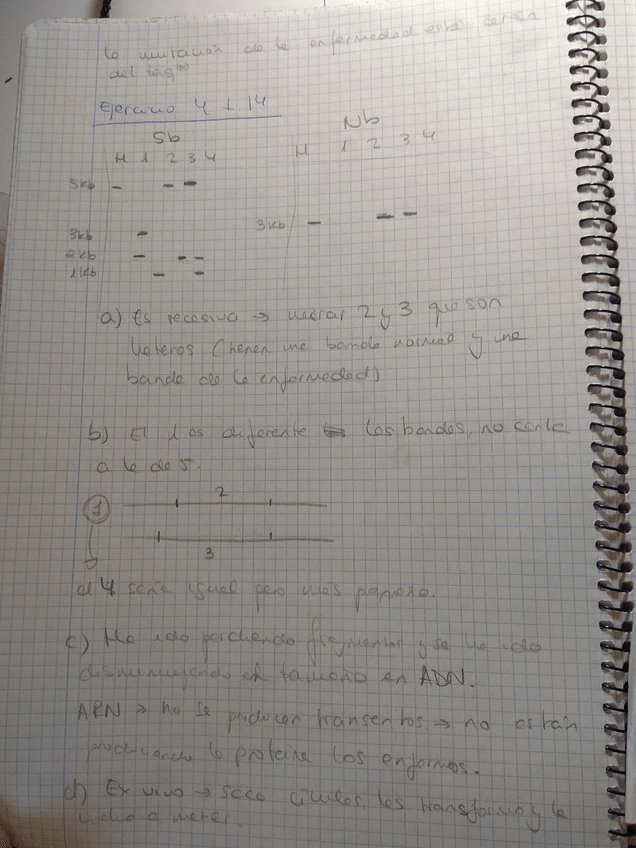 la mutación de la enfermedad está detrás
del
Ejercicio 4 + 14
Sb
Nb
M 1 2 3 4
M 1 2 3 4
5Kb
3Kb
3Kb
2Kb
1Kb
a) Es recesiva → mirar 2 y 3 que son
heteros (tienen una banda normal y una
banda de la enfermedad)
b) El 1 es diferente las bandas, no
a la de 5.
1
2
3
el 4 sería igual pero más pequeño.
c) Ha ido perdiendo fragmentos y se ha ido
disminuyendo el tamaño en ADN.
ARN → no se producen transcritos → no están
produciendo la proteína los enfermos.
d) Ex vivo → saco células, las transformo y la
vuelvo a meter.